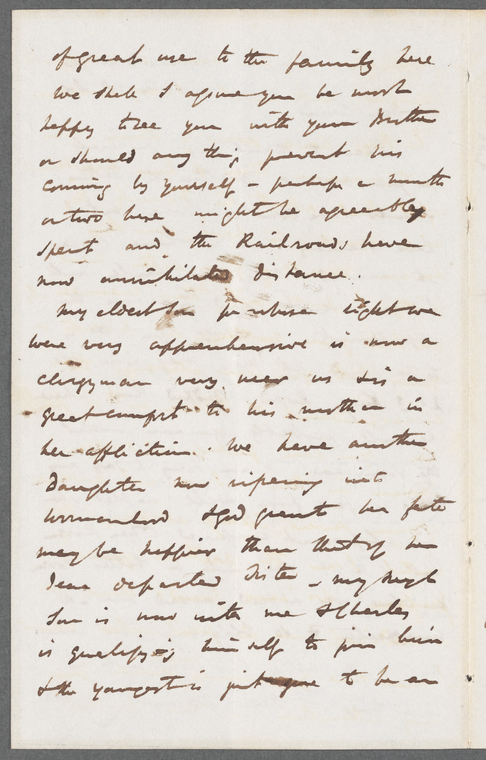 of great use to the family here
we shall I assure you be most
happy to see you with your Brother
or should any thing prevent his
coming by yourself - perhaps a month
or two here might be agreeably
spent and the Railroads have
now annihilated distance.
My eldest Son for whose sight we
were very apprehensive is now a
clergyman very near us & is a
great comfort to his mother in
her affliction. We have another
Daughter now ripening into
womanhood & God grant her fate
may be happier than that of her
dear departed Sister - my
Son is now with me & Charles
is qualifying himself to join him
& the youngest is just gone to be an